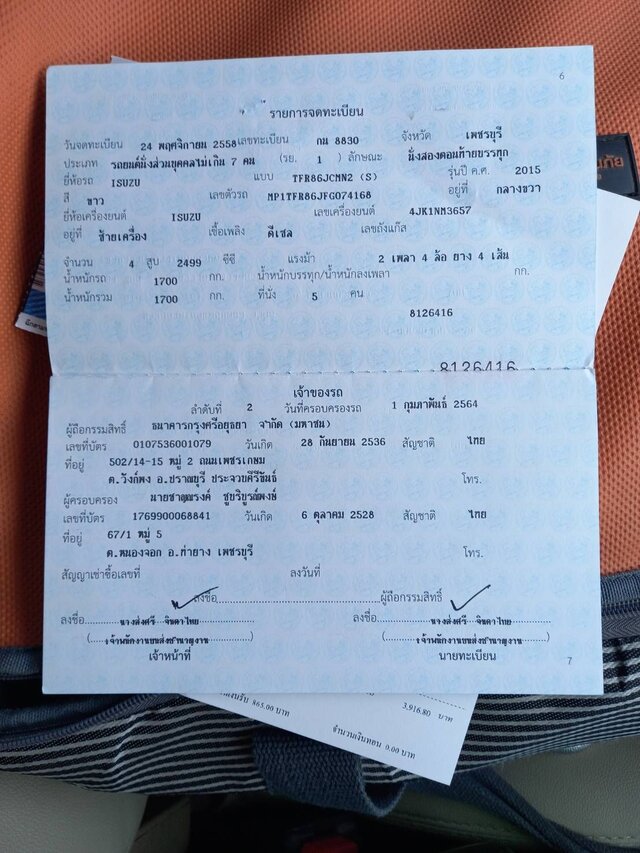 6
รายการจดทะเบียน
วันจดทะเบียน 24 พฤศจิกายน 2558 เลขทะเบียน กน 8830 จังหวัด เพชรบุรี
ประเภท รถยนต์นั่งส่วนบุคคลไม่เกิน 7 คน (รย. 1 ) ลักษณะ นั่งสองตอนท้ายบรรทุก
ยี่ห้อรถ ISUZU แบบ TFR86JCMN2 (S) รุ่นปี ค.ศ. 2015
สี ขาว เลขตัวรถ MP1TFR86JFG074168 อยู่ที่ กลางขวา
ยี่ห้อเครื่องยนต์ ISUZU เลขเครื่องยนต์ 4JK1NM3657
อยู่ที่ ซ้ายเครื่อง เชื้อเพลิง ดีเซล เลขถังแก๊ส
จำนวน 4 สูบ 2499 ซีซี แรงม้า 2 เพลา 4 ล้อ ยาง 4 เส้น
น้ำหนักรถ 1700 กก. น้ำหนักบรรทุก/น้ำหนักลงเพลา กก.
น้ำหนักรวม 1700 กก. ที่นั่ง 5 คน
8126416
8126416
เจ้าของรถ
ลำดับที่ 2 วันที่ครอบครองรถ 1 กุมภาพันธ์ 2564
ผู้ถือกรรมสิทธิ์ ธนาคารกรุงศรีอยุธยา จำกัด (มหาชน)
เลขที่บัตร 0107536001079 วันเกิด 28 กันยายน 2536 สัญชาติ ไทย
ที่อยู่ 502/14-15 หมู่ 2 ถนนเพชรเกษม
ต.วังก์พง อ.ปราณบุรี ประจวบคีรีขันธ์ โทร.
ผู้ครอบครอง นายชาญณรงค์ ชูบริบูรณ์พงษ์
เลขที่บัตร 1769900068841 วันเกิด 6 ตุลาคม 2528 สัญชาติ ไทย
ที่อยู่ 67/1 หมู่ 5
ต.หนองจอก อ.ท่ายาง เพชรบุรี โทร.
สัญญาเช่าซื้อเลขที่ ลงวันที่
ลงชื่อ ผู้ถือกรรมสิทธิ์
ลงชื่อ นางส่งศรี จินดาไทย นางส่งศรี จินดาไทย
(เจ้าพนักงานขนส่งชำนาญงาน) (เจ้าพนักงานขนส่งชำนาญงาน)
เจ้าหน้าที่ นายทะเบียน
7
3,916.80 บาท
865.00 บาท
จำนวนเงินทอน 0.00 บาท